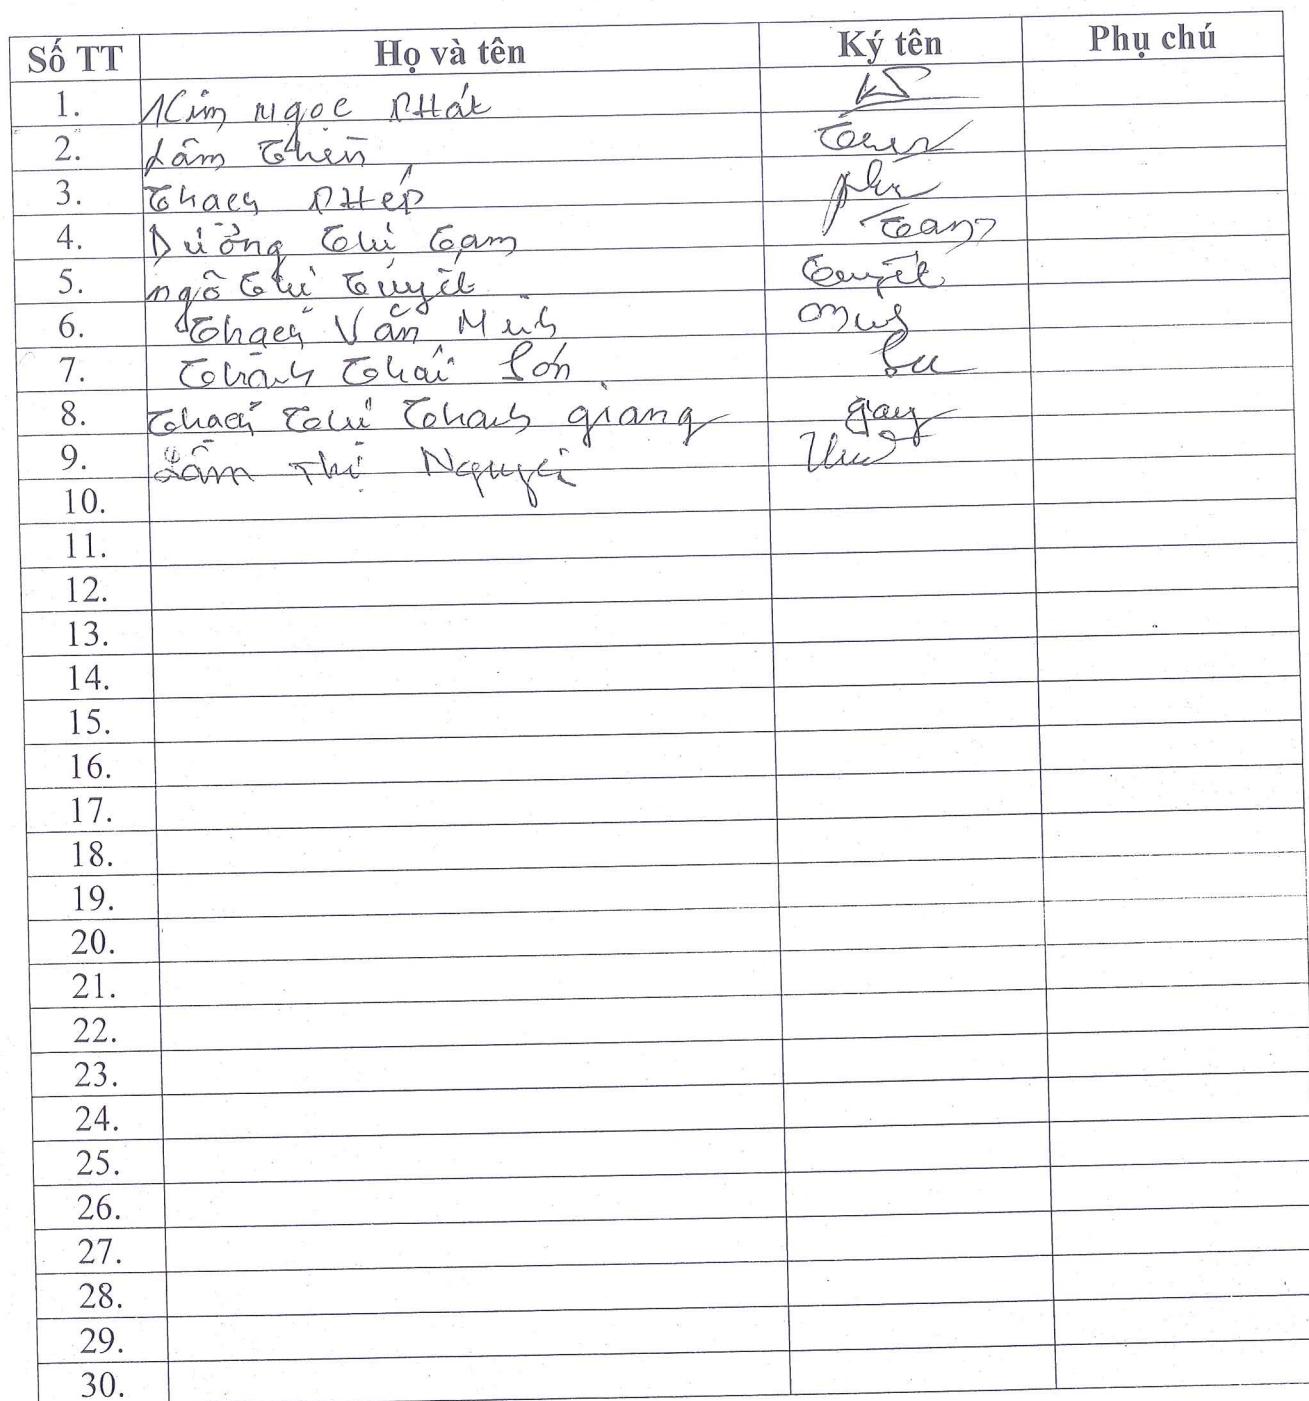 Số TT Họ và tên Ký tên Phụ chú
1. Kim Ngọc Phát
2. Lâm Thên
3. Thạch Phép
4. Dường Thị Tạm Tam
5. Ngô Thị Tuyết Tuyết
6. Thạch Văn Minh
7. Thạch Thái Sơn
8. Thạch Thị Thanh giang
9. Lâm Thị
10.
11.
12.
13.
14.
15.
16.
17.
18.
19.
20.
21.
22.
23.
24.
25.
26.
27.
28.
29.
30.